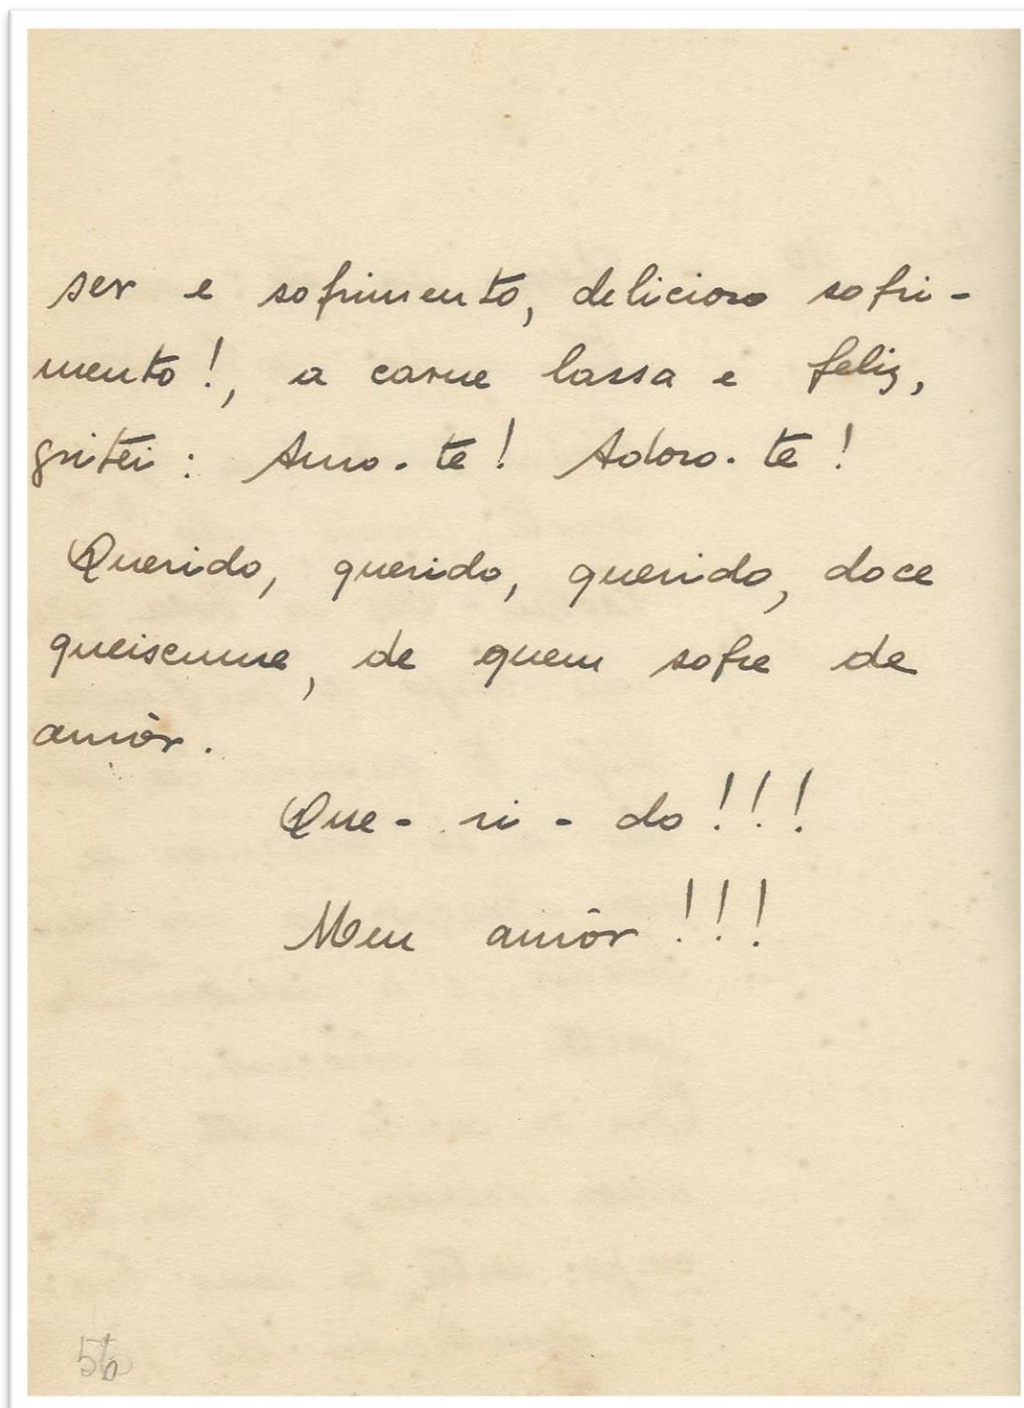 ser e sofrimento, delicioso sofri-
mento!, a carne lassa e feliz,
gritei: Amo-te! Adoro-te!
Querido, querido, querido, doce
queixume, de quem sofre de
amôr.
Que-ri-do!!!
Meu amôr!!!
56